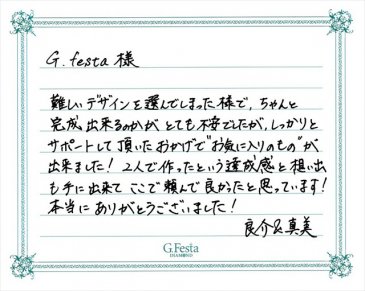 G.festa 様
難しいデザインを選んでしまった様で、ちゃんと
完成出来るのかが とても不安でしたが、しっかりと
サポートして頂いたおかげで"お気に入りのもの"が
出来ました！２人で作ったという達成感と想い出
も手に出来て ここで頼んで良かったと思っています！
本当に ありがとうございました！
良介&真美
G.Festa
DIAMOND